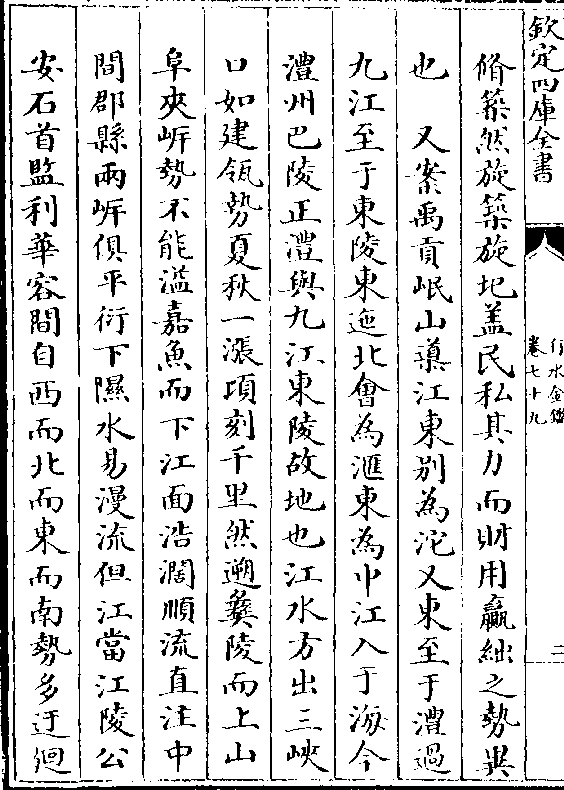 欽定四庫全書
行水金鑑
卷七十九
二
脩築然旋築旋圮盖民私其力而財用贏絀之勢異
也　又案禹貢岷山導江東别為沱又東至于澧過
九江至于東陵東迤北會為滙東為中江入于海今
澧州巴陵正澧與九江東陵故地也江水方出三峽
口如建瓴勢夏秋一漲項刻千里然遡彝陵而上山
阜夾㟁勢不能溢嘉魚而下江面浩濶順流直注中
間郡縣兩㟁俱平衍下隰水易漫流但江當江陵公
安石首監利華容間自西而北而東而南勢多迂迴